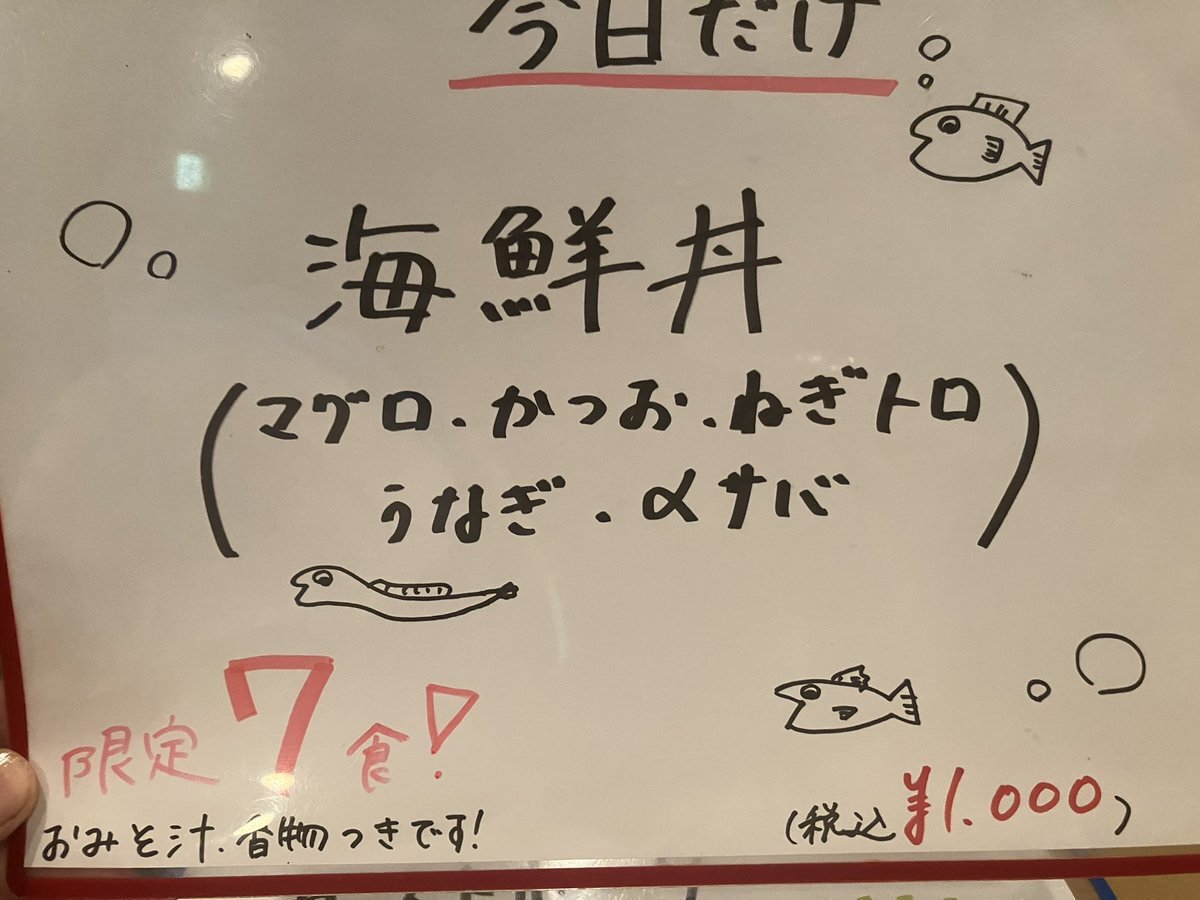 今日だけ
海鮮丼
(マグロ.かつお.ねぎトロ
うなぎ.〆サバ)
限定7食!
おみそ汁.香物つきです!
(税込¥1.000)